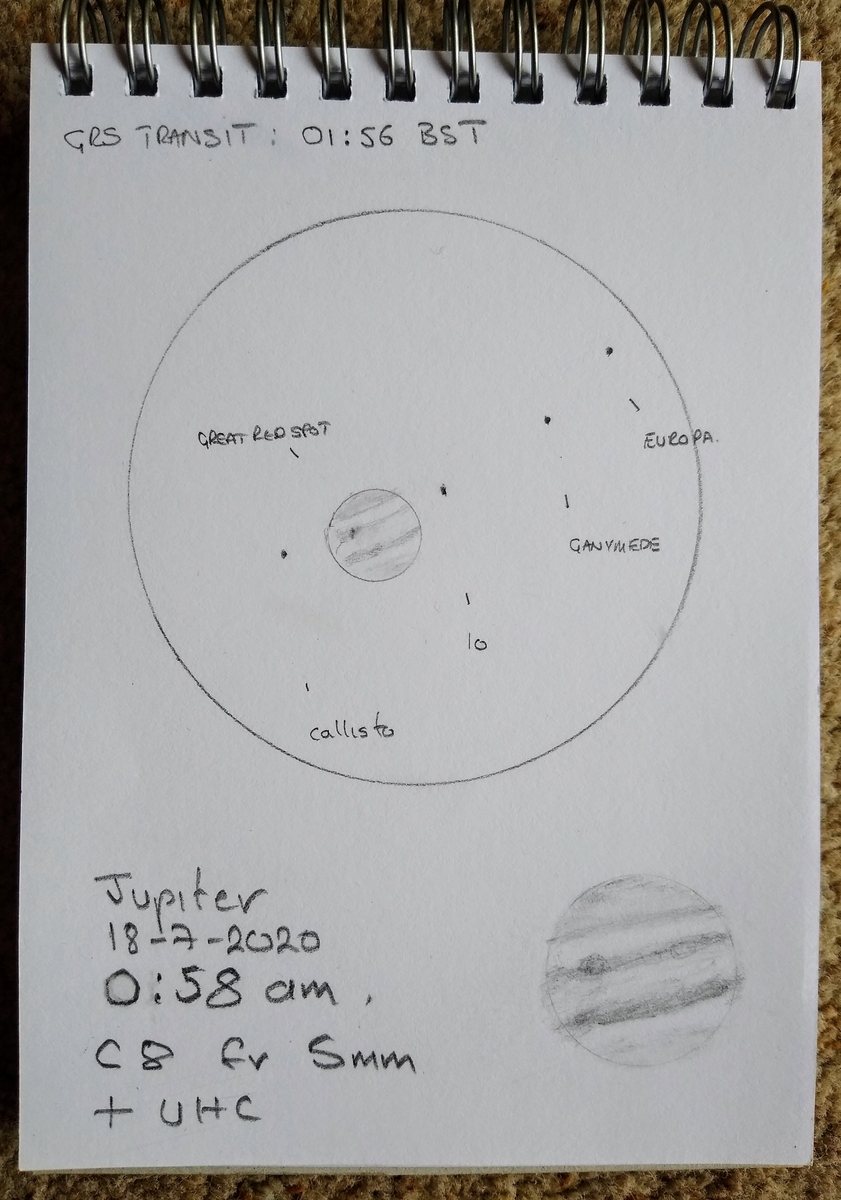 GRS TRANSIT: 01:56 BST
GREAT RED SPOT
EUROPA.
GANYMEDE
Io
Callisto
Jupiter
18-7-2020
0:58 am.
C8 fr 5mm
+ UHC